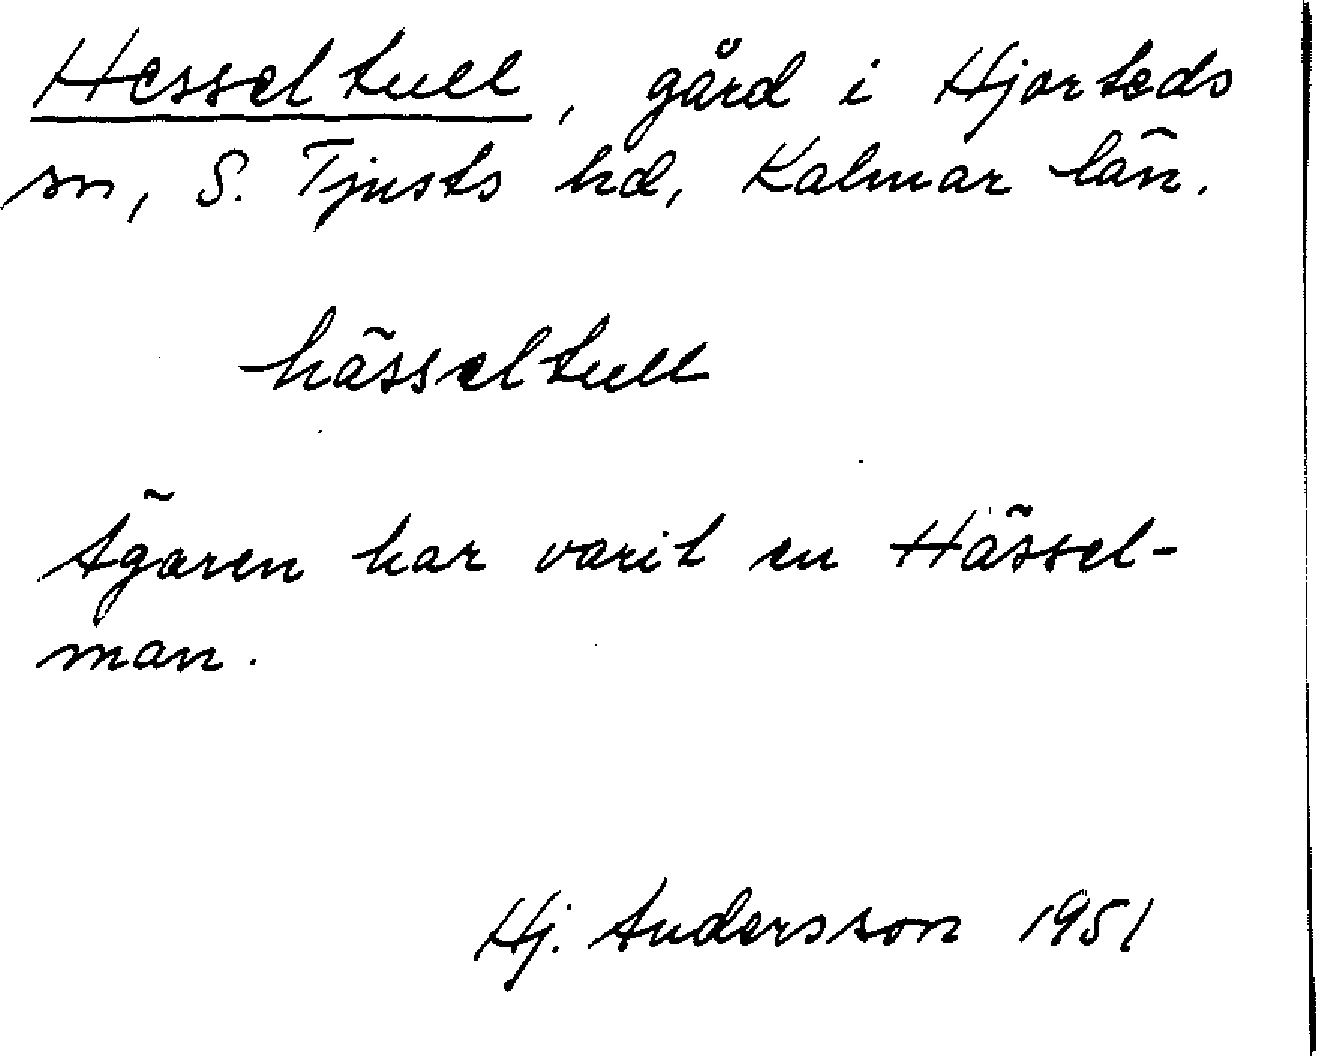 Hesseltull, gård i Hjorteds
sn, S. Tjusts hd, Kalmar län.
hässeltull
Ägaren har varit en Hässel-
man.
Hj. Andersson 1951